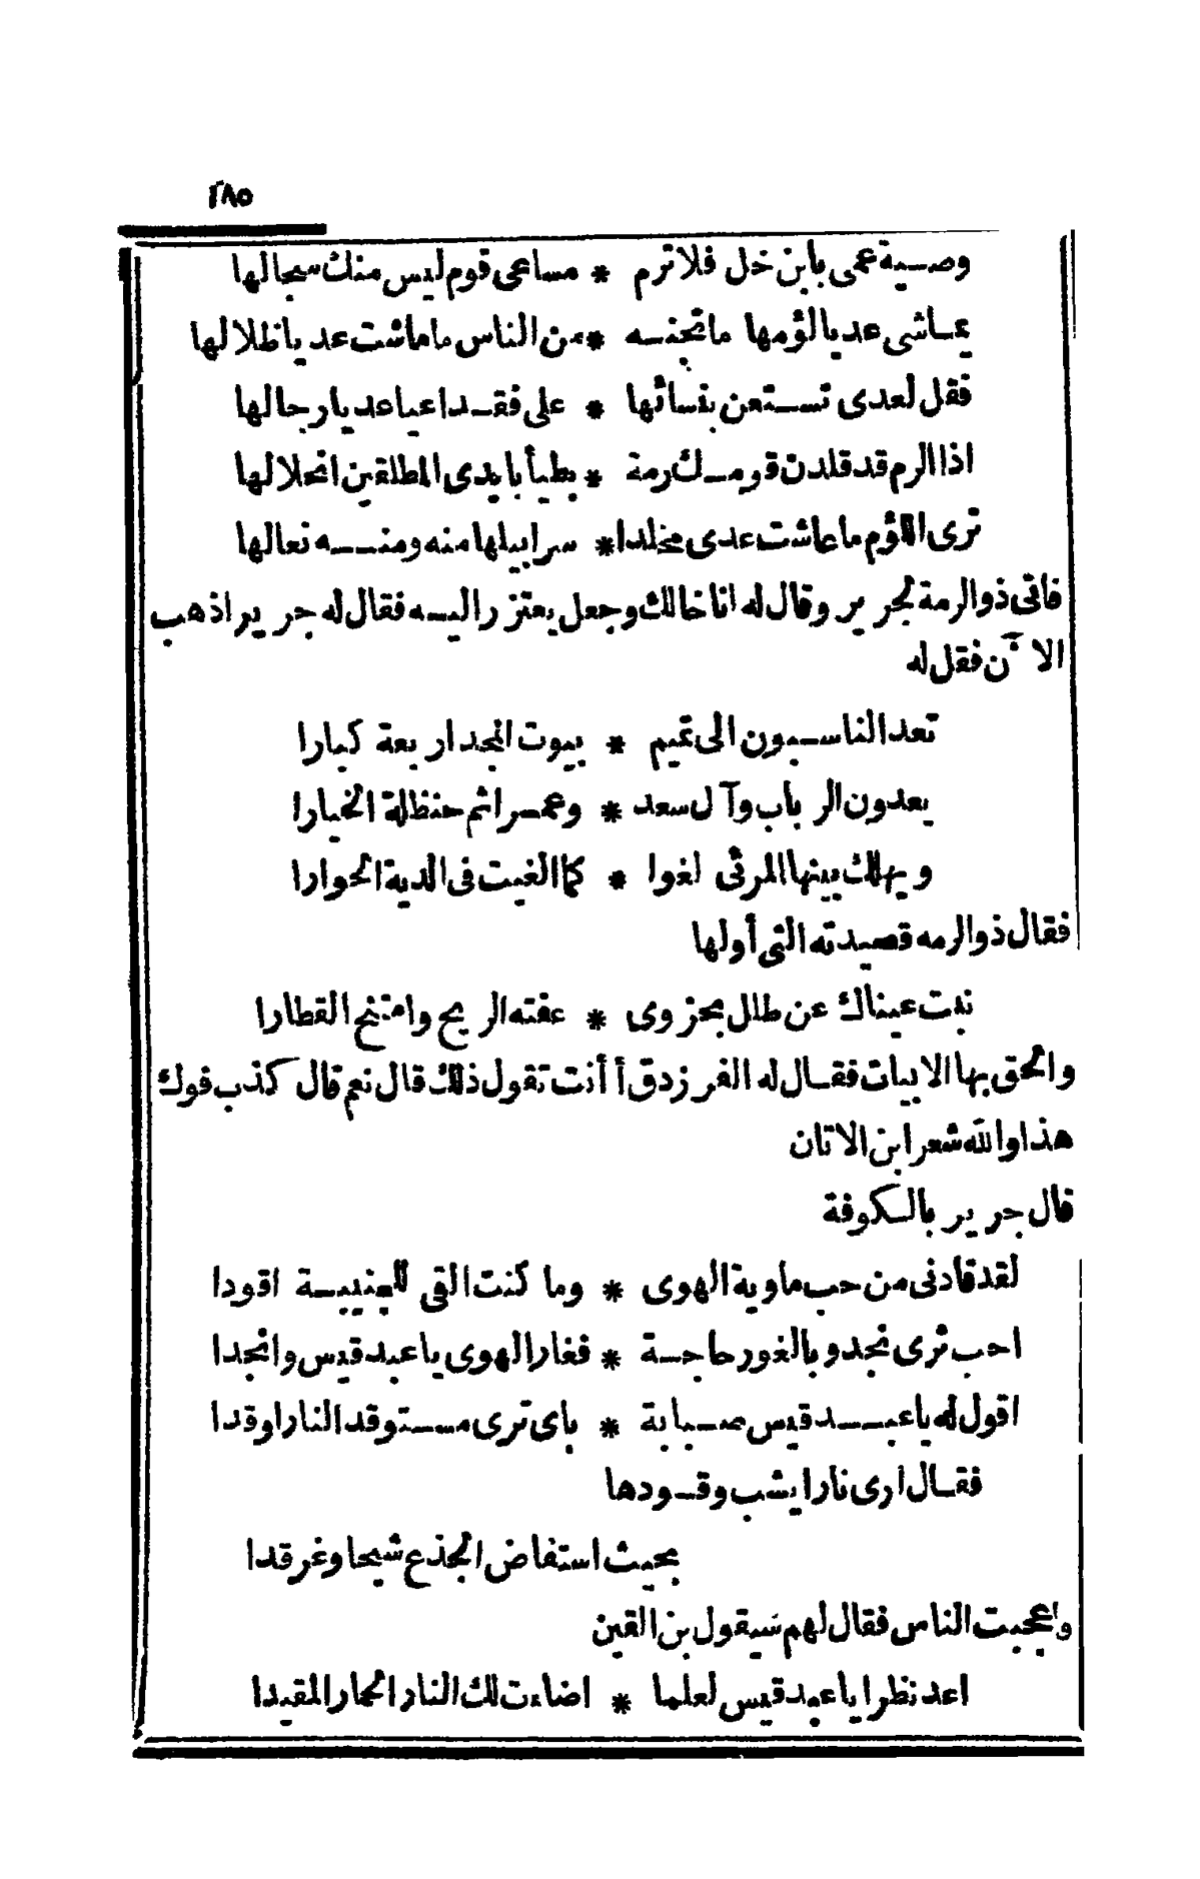 ٢٨٥
وصية عمى يابن خل فلا ترم * مساعى قوم ليس منك سجالها
يماشى عديا لؤمها ما تجنه * من الناس ما ماشت عديا ظلالها
فقل لعدى تستعن بنسائها * على فقد اعيا عديا رجالها
اذا الرم قد قلدن قومك رمة * بطيأ بايدى المطلقين انحلالها
ترى اللؤم ما عاشت عدى مخلدا * سرابيلها منه ومنه نعالها
فاتى ذو الرمة لجرير وقال له انا خالك وجعل يعتزر اليه فقال له جرير اذهب
الآن فقل له
تعد الناسبون الى تميم * بيوت المجد اربعة كبارا
يعدون الرباب وآل سعد * وعمرا ثم حنظلة الخيارا
ويهلك بينها المرئى لغوا * كما الغيت فى الدية الحوارا
فقال ذو الرمه قصيدته التى أولها
نبت عيناك عن طلل بحزوى * عفته الريح وامتنح القطارا
والحق بها الابيات فقال له الفرزدق أأنت تقول ذلك قال نعم قال كذب فوك
هذا والله شعر ابن الاتان
قال جرير بالكوفة
لقد قادنى من حب ماوية الهوى * وما كنت القى للجنيبة اقودا
احب ثرى نجد وبالغور حاجة * فغار الهوى يا عبد قيس وانجدا
اقول له يا عبد قيس صبابة * باى ترى مستوقد النار اوقدا
فقال ارى نارا يشب وقودها
بحيث استفاض الجذع شيحا وغرقدا
واعجبت الناس فقال لهم سيقول بن القين
اعد نظرا يا عبد قيس لعلما * اضاءت لك النار الحمار المقيدا